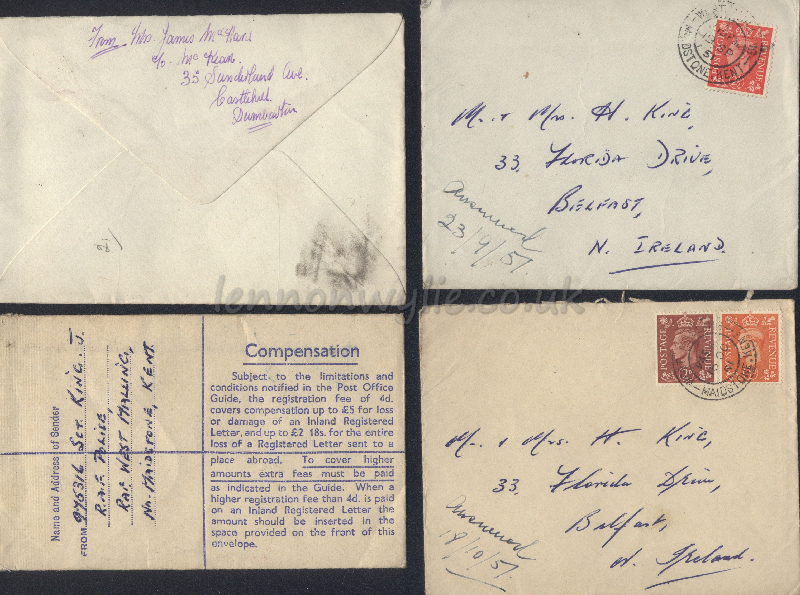 From Mrs. James
c/o Mc Kean
35 Sunderland Ave.
Castlehill
Dumbarton
MAIDSTONE KENT
REVENUE
Mr. & Mrs. H. King,
33, Florida Drive,
Belfast,
N. Ireland.
Answered
23/9/51.
lennonwylie.co.uk
Name and Address of Sender
FROM 976316 Sgt. King. J.
R.A.F. Police,
R.A.F. West Malling,
Nr. Maidstone, Kent.
Compensation
Subject to the limitations and
conditions notified in the Post Office
Guide, the registration fee of 4d.
covers compensation up to £5 for loss
or damage of an Inland Registered
Letter, and up to £2 18s. for the entire
loss of a Registered Letter sent to a
place abroad. To cover higher
amounts extra fees must be paid
as indicated in the Guide. When a
higher registration fee than 4d. is paid
on an Inland Registered Letter the
amount should be inserted in the
space provided on the front of this
envelope.
POSTAGE REVENUE
REVENUE
MAIDSTONE
Mr. & Mrs. H. King,
33, Florida Drive,
Belfast,
N. Ireland.
Answered
18/10/51.